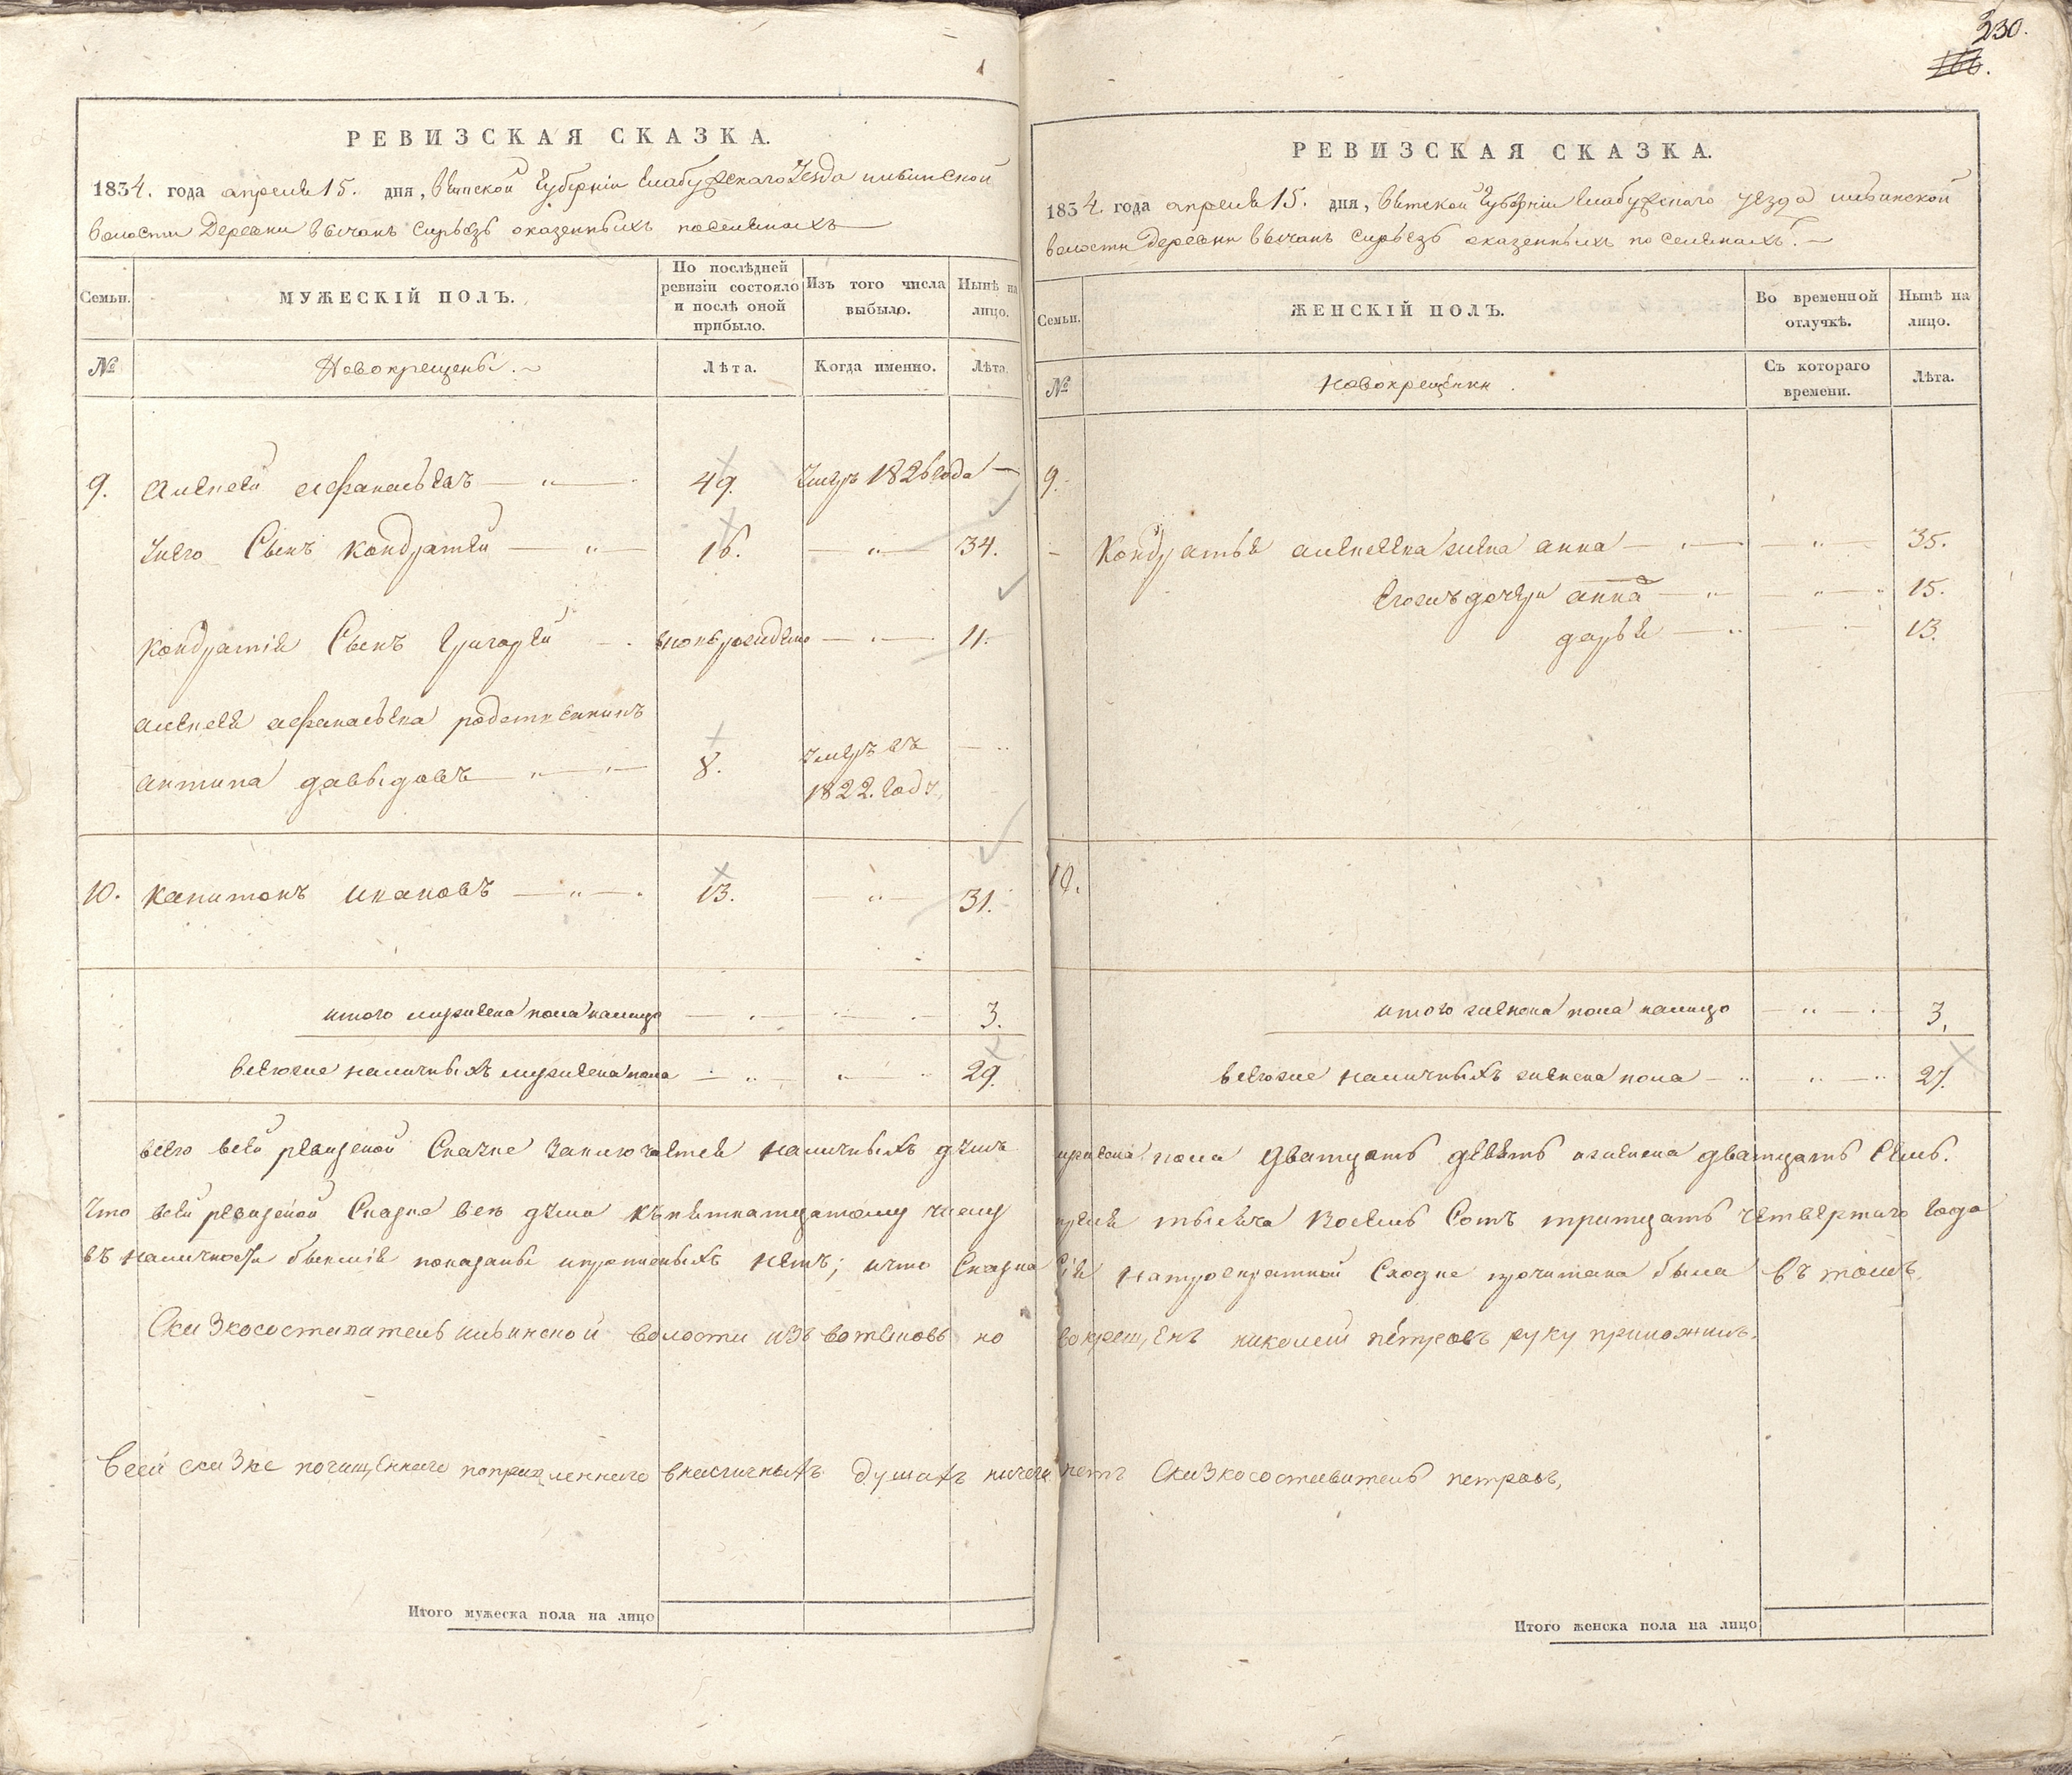 1
РЕВИЗСКАЯ СКАЗКА.
1834. года апреля 15. дня, Вятской Губерніи Елабужскаго Уезда ильинской
волости Деревни вычанъ сирьезь оказенныхъ поселянахъ
Семьи.
МУЖЕСКІЙ ПОЛЪ.
По послѣдней ревизіи состояло и послѣ оной прибыло.
Изъ того числа выбыло.
Нынѣ на лицо.
№
Новокрещены.
Лѣта.
Когда именно.
Лѣта.
9. Алексей афанасьевъ 49. Умеръ 1826 года
Унего Сынъ Кондратей 16. 34.
Кондратія Сынъ Григорей вновьрожденъ 11.
алексея афанасьева родственникъ
антипа давыдовъ 8. умеръ въ
1822. Году
10. Капитонъ ивановъ 13. 31.
итого мужеска пола налицо 3.
всегоже наличныхъ мужеска пола 29.
330.
166.
РЕВИЗСКАЯ СКАЗКА.
1834. года апреля 15. дня, Вятской Губерніи Елабужскаго уезда ильинской
волости Деревни вычанъ сирьезь оказенныхъ поселянахъ.
Семьи.
ЖЕНСКІЙ ПОЛЪ.
Во временной отлучкѣ.
Нынѣ на лицо.
№
новокрещенки.
Съ котораго времени.
Лѣта.
9.
Кондратья алексеева жена анна 35.
Егожъ дочери анна 15.
дарья 13.
10.
итого женска пола налицо 3.
всегоже наличныхъ женска пола 27.
всего всей ревизской Сказке заключается наличныхъ душъ мужеска пола дватцать девять иженска дватцать Семь.
Что всей ревизской Сказке все души къпятнатцатому числу апреля тысяча Восемь Сотъ тритцать четвертаго Года
въ наличности бывшія показаны ипрописныхъ нетъ; ичто Сказка Сія натроекратной Сходке прочитана была въ томъ
Сказкосоставитель ильинской волости изъ вотяковъ новокрещенъ николай петровъ руку приложилъ.
всей сказке почищеннаго поправленнаго вналичныхъ душахъ ничего нетъ Сказкосоставитель петровъ,
Итого мужеска пола на лицо
Итого женска пола на лицо